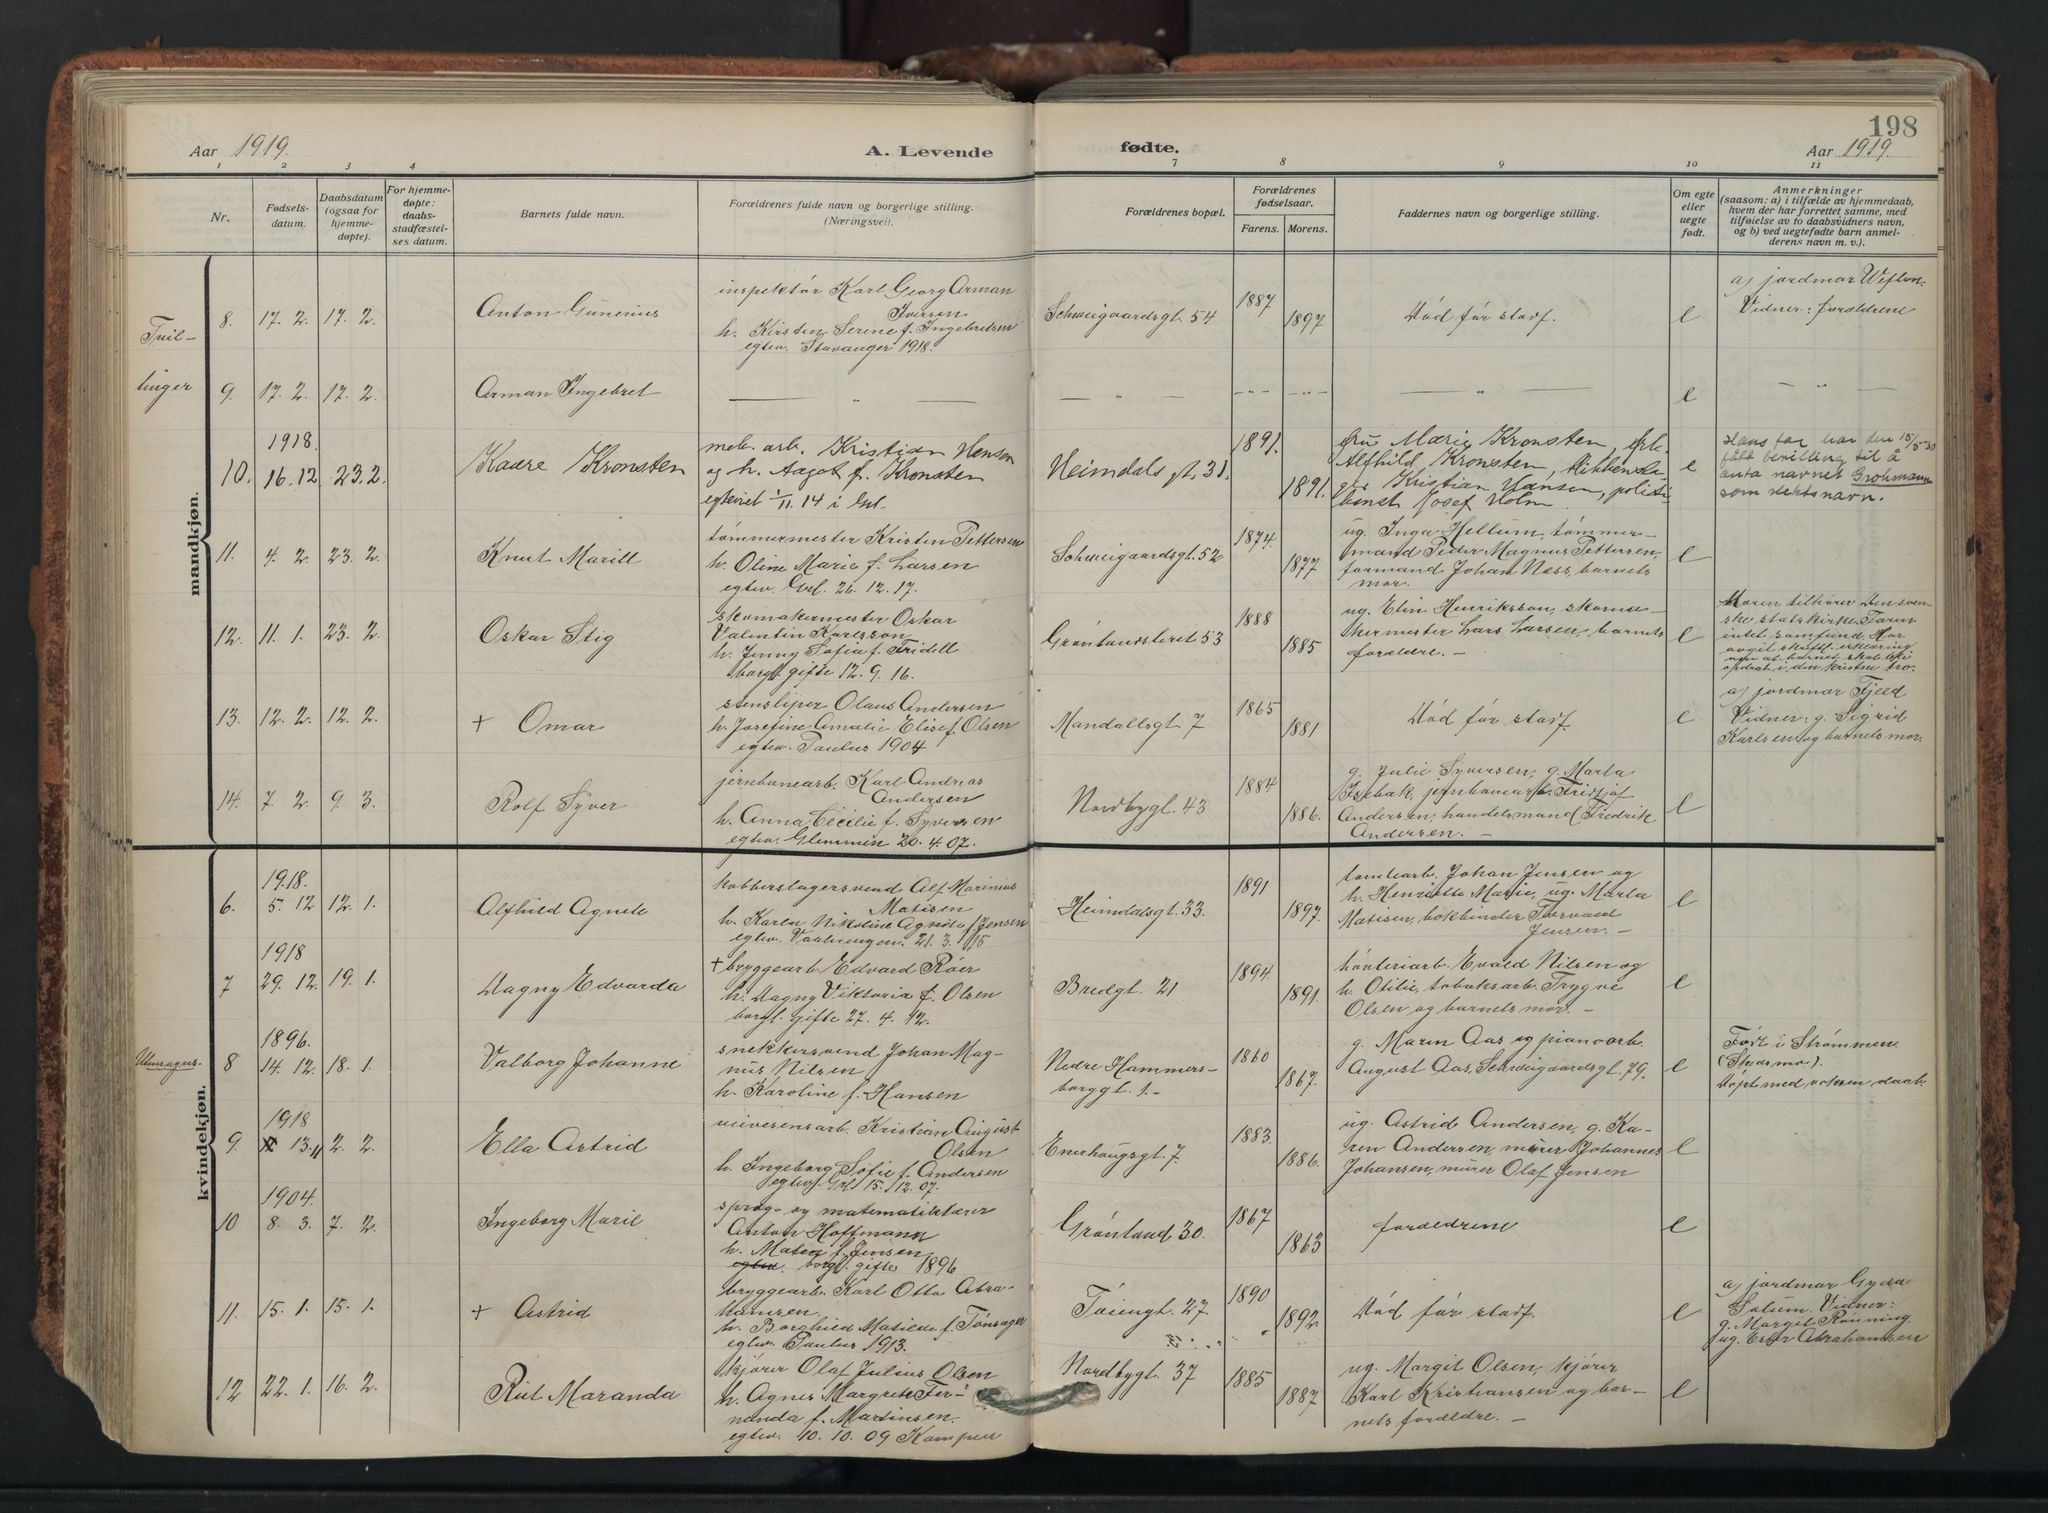 198
Aar 1919. A. Levende fødte. Aar 1919.
1 2 3 4 7 8 9 10 11
Nr.
Fødsels-
datum.
Daabsdatum
(ogsaa for
hjemme-
døpte).
For hjemme-
døpte:
daabs-
stadfæstel-
ses datum.
Barnets fulde navn.
Forældrenes fulde navn og borgerlige stilling.
(Næringsvei).
Forældrenes bopæl.
Forældrenes
fødselsaar.
Farens. Morens.
Faddernes navn og borgerlige stilling.
Om egte
eller
uegte
født.
Anmerkninger
(saasom: a) i tilfælde av hjemmedaab,
hvem der har forrettet samme, med
tilføielse av to daabsvidners navn,
og b) ved uegtefødte barn anmel-
derens navn m. v.).
mandkjøn.
Tvil-
linger
8. 17. 2. 17. 2.
Anton Gunerius
inspektør Karl Georg Arman
Iversen
h. Kirsten Serene f. Ingebretsen
egtev. Stavanger 1918.
Schweigaardsgt. 54
1887
1897
Død før stadf.
e
a) jordmor
Vidner: forældrene
9. 17. 2. 17. 2.
Arman Ingebret
— „ —
— „ —
— „ —
e
— „ —
10. 1918.
16. 12 23. 2.
Kaare Kronsten
mek. arb. Kristian Hanson
og h. Aagot f. Kronsten
egteviet 1/11. 14 i Grl.
Heimdals gt. 31.
1891.
1891.
fru Marie Kronsten, frk.
Alfhild Kronsten,
Kristian Hansen, politi
betjent Josef Holm
e
Hans far har den 15/5-30
fått bevilling til å
anta navnet Grohmann
som slektsnavn.
11. 4. 2. 23. 2.
Knut Marill
tømmermester Kristen Pettersen
h. Oline Marie f. Larsen
egtev. Grl. 26. 12. 17.
Schweigaardsgt. 52
1874.
1877
ug. Inga Hellum, tømmer-
mand Peder Magnus Pettersen,
formand Johan Næss, barnets
mor.
e
12. 11. 1. 23. 2.
Oskar Stig
skomakermester Oskar
Valentin Karlsson
h. Jenny Sofia f. Fridell
borgl. gifte 12. 9. 16.
Grønlandsleret 53
1888
1885
ug. Elin Henriksson, skoma-
kermester Lars Larsen, barnets
forældre. —
e
Moren tilhører Den sven-
ske statskirke. Faren
intet samfund. Har
avgit skriftl. erklæring
om at barnet skal bli
opdrat i den kristne tro.
13. 12. 2. 12. 2.
+ Omar
stensliper Olaus Andersen
h. Josefine Amalie Elise f. Olsen
egtev. Paulus 1904
Mandallsgt. 7
1865
1881
Død før stadf.
e
a) jordmor Fjeld
Vidner: g. Sigrid
Karlsen og barnets mor.
14. 7. 2. 9. 3.
Rolf Syver
jernbanearb. Karl Andreas
Andersen
h. Anna Cecilie f. Syversen
egtev. Glemmen 20. 4. 07.
Nordbygt. 43
1884
1886.
g. Julie Syversen, g. Marta
Isebak, jernbanearb. Fridtjof
Andersen, handelsmand Fredrik
Andersen. —
e
kvindekjøn.
6. 1918.
5. 12 12. 1.
Alfhild Agnete
kobberslagersvend Alf Marinius
Matisen
h. Karen Nikoline Agnete f. Jensen
egtev. Vaalerengen. 21. 3. 15
Heimdalsgt. 33.
1891
1897.
tomtearb. Johan Jensen og
h. Henriette Marie, ug. Marta
Matisen, bokbinder Torvald
Jensen. —
e
7 1918
29. 12. 19. 1.
Dagny Edvarda
+ bryggearb. Edvard Røer
h. Dagny Viktoria f. Olsen
borgl. gifte 27. 4. 12.
Bredgt. 21
1894.
1891.
Evald Nilsen og
h. Otilie, tobaksarb. Trygve
Olsen og barnets mor. —
e
8 1896.
14. 12. 18. 1.
Valborg Johanne
snekkersvend Johan Mag-
nus Nilsen
h. Karoline f. Hansen
Nedre Hammers-
borggt. 1. —
1860
1867.
g. Maren Aas og pianoarb.
August Aas, Schweigaardsgt. 79.
e
Født i Strømmen
(Skedsmo).
Døpt med voksen daab.
9. 1918
13. 11 2. 2.
Ella Astrid
veivesensarb. Kristian August
Olsen
h. Ingeborg Sofie f. Andersen
egtev. Grl. 15. 12. 07.
Enerhaugsgt. 7.
1883.
1886.
ug. Astrid Andersen, g. Ka-
ren Andersen, murer Johannes
Johansen, murer Olaf Jensen
e
10 1904.
8. 3. 7. 2.
Ingeborg Maril
sprog- og matematiklærer
Anton Hoffmann
h. Matea f. Jensen
egtev. borgl. gifte 1896
Grønland 30.
1867
1863
forældrene
e
11. 15. 1. 15. 1.
+ Astrid
bryggearb. Karl Otto Abra-
hamsen
h. Borghild Matilde f. Tønsager
egtev. Paulus 1913.
Tøiengt. 27
1890
1892
Død før stadf.
e
a) jordmor Gyda
Solum. Vidner:
g. Margit Rønning
ug. Ester Abrahamsen
12 22. 1. 16. 2.
Rut Maranda
kjører Olaf Julius Olsen
h. Agnes Margrete Fer-
nanda f. Martinsen.
egtev. 10. 10. 09 Kampen
Nordbygt. 37
1885
1887
ug. Margit Olsen, kjører
Karl Kristiansen og bar-
nets forældre. —
e